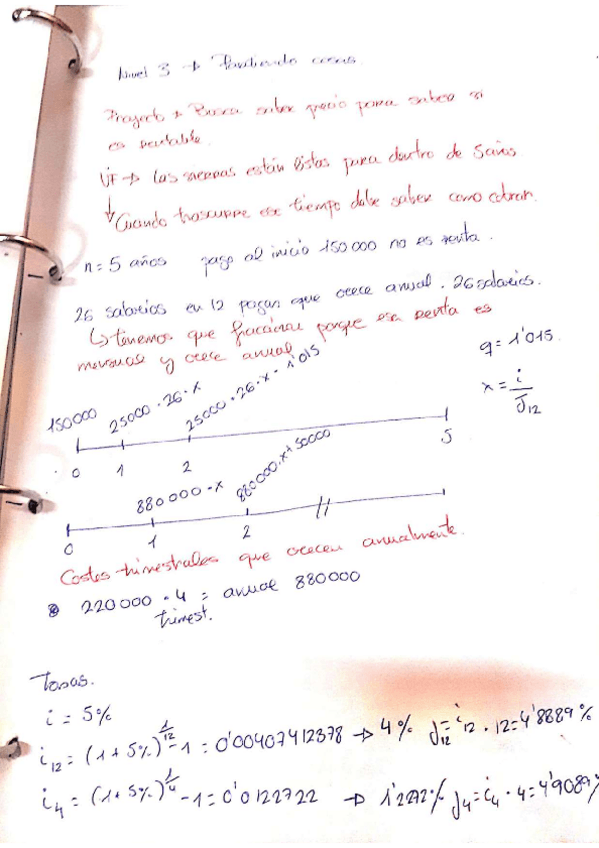 Nivel 3 → Partiendo casos.
Proyecto → Busca saber precio para saber si
es rentable.
UF → Las siernas están listas para dentro de 5 años
↓ Cuando trascurre ese tiempo debe saber como cobran.
n = 5 años pago al inicio 150000 no es renta.
26 salarios en 12 pagas que crece anual. 26 salarios.
↳ tenemos que fraccionar porque esa renta es
mensual y crece anual
q = 1'015.
x = i / J12
150000 25000 · 26 · x 25000 · 26 · x · 1'015
0 1 2 5
880000 · x 880000 · x + 50000
0 1 2 //
Costes trimestrales que crecen anualmente.
220000 · 4 = anual 880000
trimest.
Tasas.
i = 5%
i12 = (1+5%)^1/12 - 1 = 0'00407412378 → 4% J12 = i12 · 12 = 4'8889%
i4 = (1+5%)^1/4 - 1 = 0'0122722 → 1'2272% J4 = i4 · 4 = 4'9089%